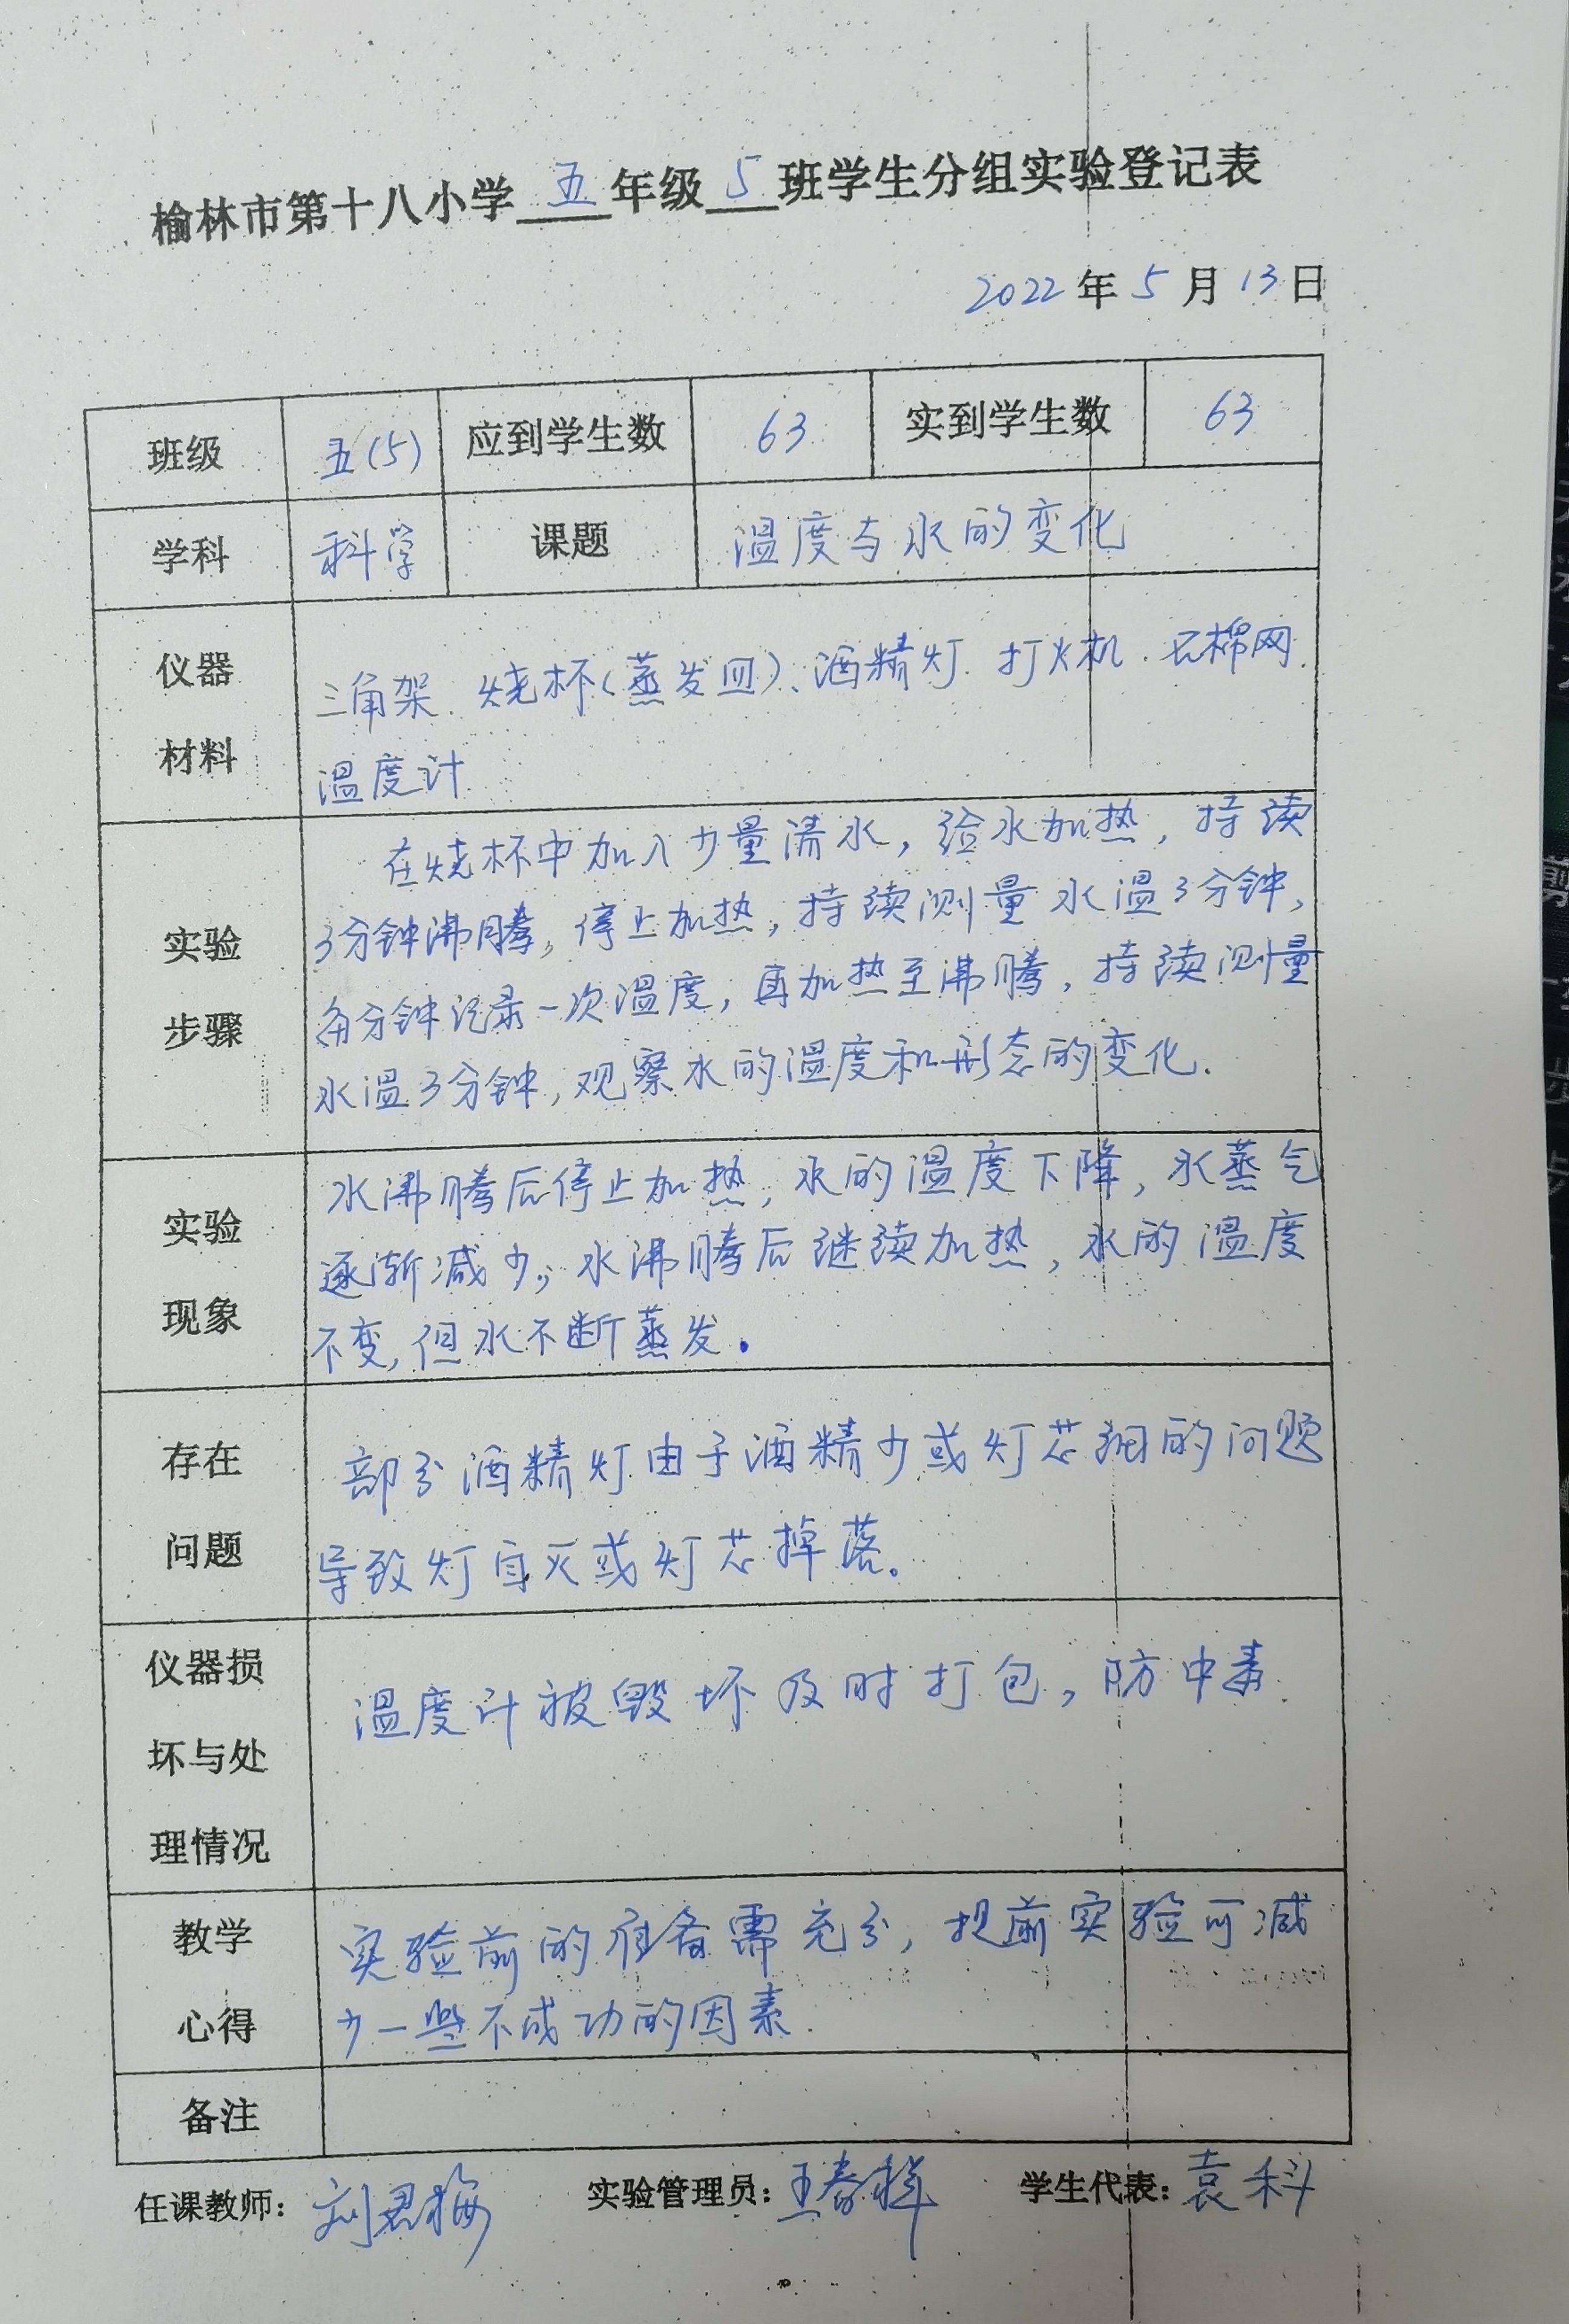 榆林市第十八小学 五 年级 5 班学生分组实验登记表
2022 年 5 月 13 日
班级 五(5) 应到学生数 63 实到学生数 63
学科 科学 课题 温度与水的变化
仪器材料
三角架、烧杯(蒸发皿)、酒精灯、打火机、石棉网、
温度计
实验步骤
在烧杯中加入少量清水，给水加热，持续
3分钟沸腾，停止加热，持续测量水温3分钟，
每分钟记录一次温度，再加热至沸腾，持续测量
水温3分钟，观察水的温度和形态的变化.
实验现象
水沸腾后停止加热，水的温度下降，水蒸气
逐渐减少；水沸腾后继续加热，水的温度
不变，但水不断蒸发.
存在问题
部分酒精灯由于酒精少或灯芯细的问题
导致灯自灭或灯芯掉落。
仪器损坏与处理情况
温度计被毁坏及时打包，防中毒.
教学心得
实验前的准备需充分，提前实验可减
少一些不成功的因素.
备注
任课教师：刘君梅 实验管理员：王春 学生代表：袁科